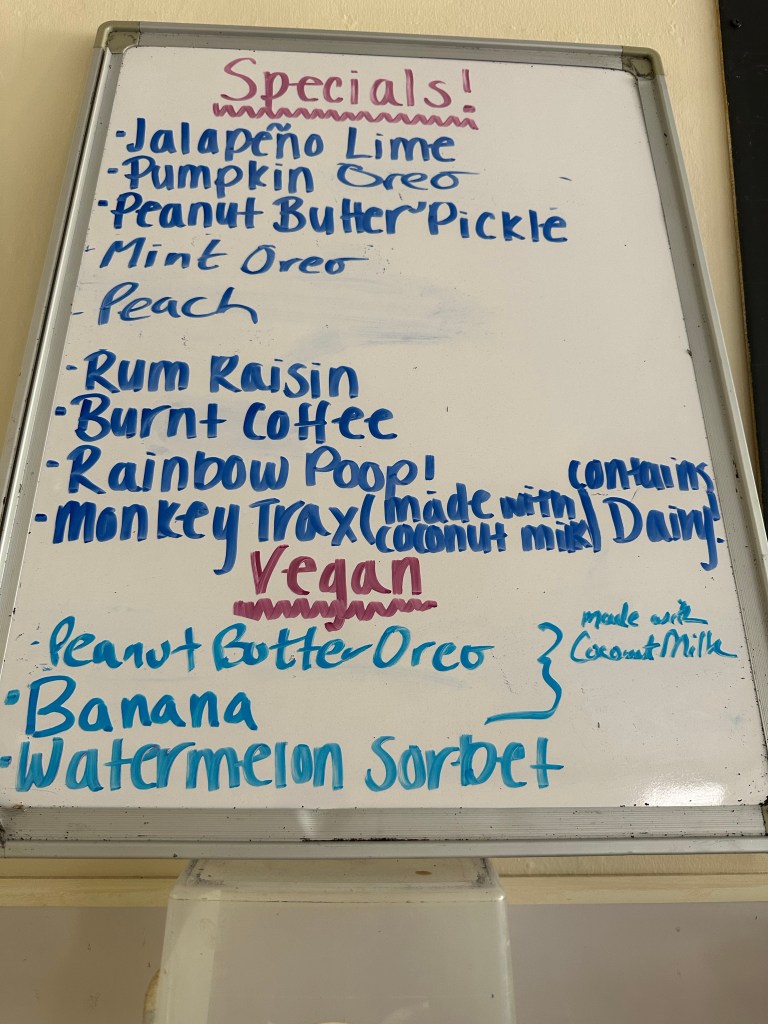 Specials!
·Jalapeño Lime
·Pumpkin Oreo
·Peanut Butter Pickle
·Mint Oreo
·Peach
·Rum Raisin
·Burnt Coffee
·Rainbow Poop!
·Monkey Trax (made with coconut milk) contains Dairy!
Vegan
·Peanut Butter Oreo
·Banana
made with
Coconut Milk
·Watermelon Sorbet